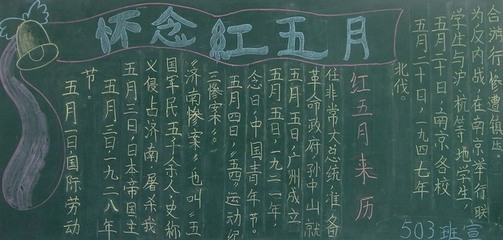 怀念红五月
红五月来历
五月一日国际劳动
节。
五月三日一九二八年
五月三日,日本帝国主
义侵占济南屠杀我
国军民五千余人史称
《济南惨案》也叫《五
三惨案》。
五月四日,《五四》运动纪
念日,中国青年节。
五月五日,一九二一年,
五月五日广州成立
革命政府,孙中山就
任非常大总统,准备
北伐。
五月二十日,一九四七年
五月二十日,南京各校
学生与沪杭等地学生,
为反内战,在南京举行联
合游行,惨遭镇压
503班宣